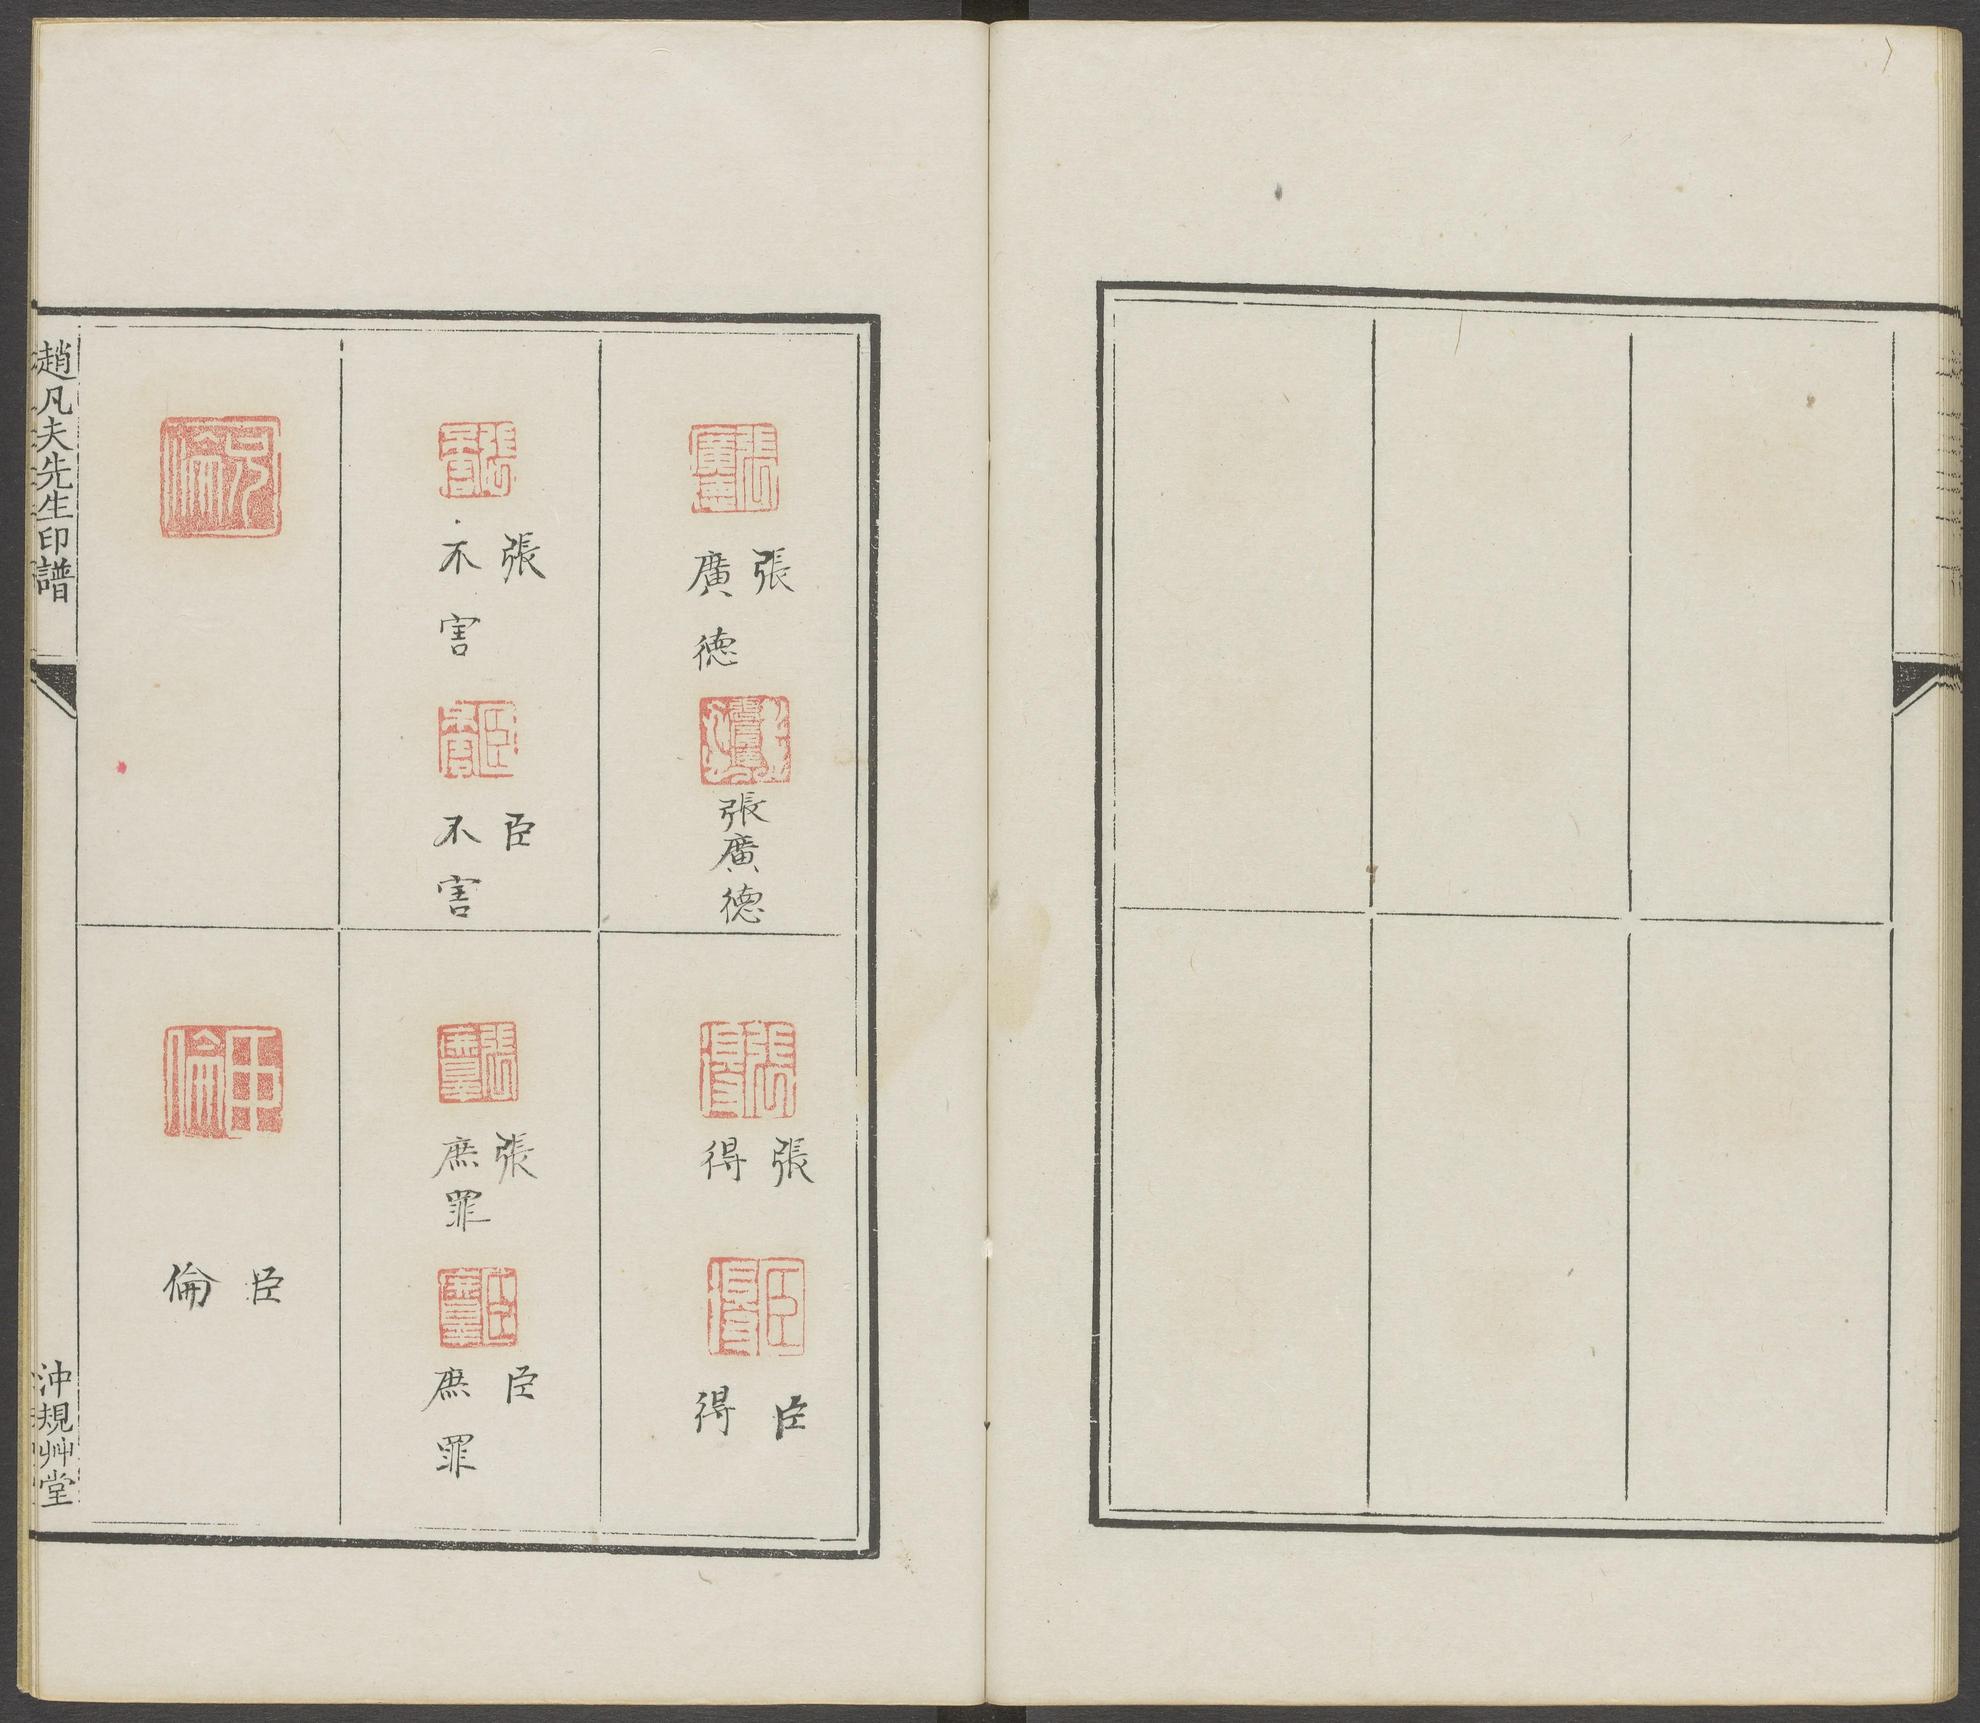 張
廣德
張廣德
張
得
臣
得
張
不害
臣
不害
張
庶罪
臣
庶罪
臣
倫
趙凡夫先生印譜
沖規艸堂